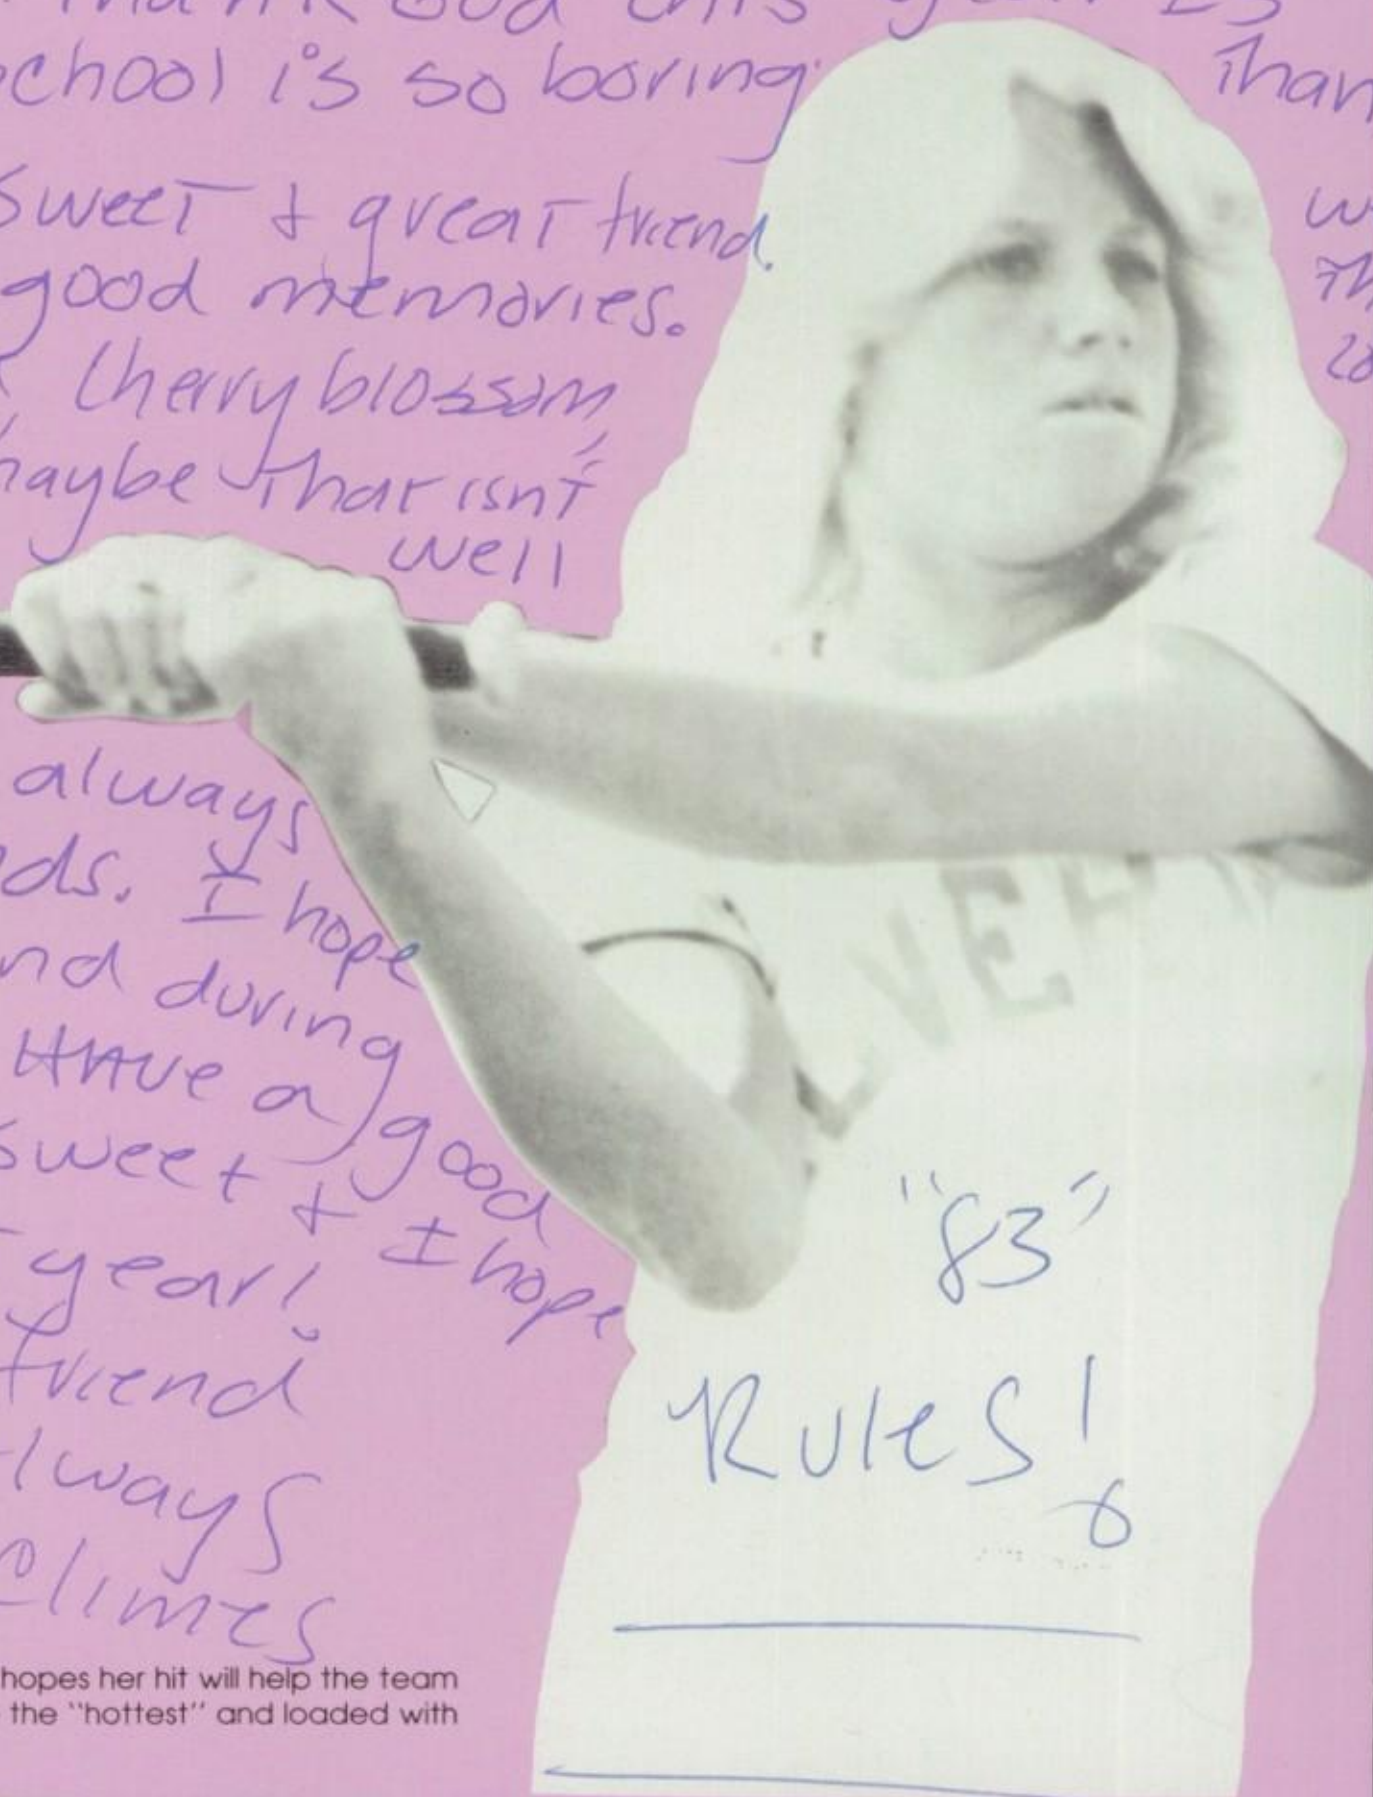 Thank God this year is
School is so boring.
Sweet & great friend.
good memories.
Cherry blossom,
maybe that isn't
well
always
I hope
during
Have a good
sweet & I hope
year!
friend
always
"83"
Rules!
hopes her hit will help the team
the "hottest" and loaded with